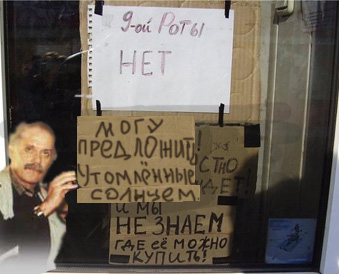 9-ой Роты
НЕТ
МОГУ
ПРЕДЛОЖИТЬ
УТОМЛЁННЫЕ
СОЛНЦЕМ
!
СТНО
ДЕТ!
И МЫ
НЕ ЗНАЕМ
ГДЕ ЕЁ МОЖНО
КУПИТЬ!